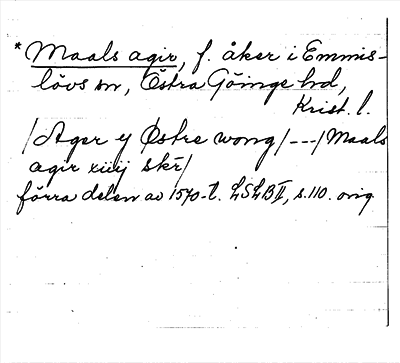 * Maals agir, f. åker i Emmis-
lövs sn, Östra Göinge hd,
Krist. l.
/Ager y Østre wong/---/Maals
agir xiiij skr̄/
förra delen av 1570-t. LSLB II, s. 110. orig